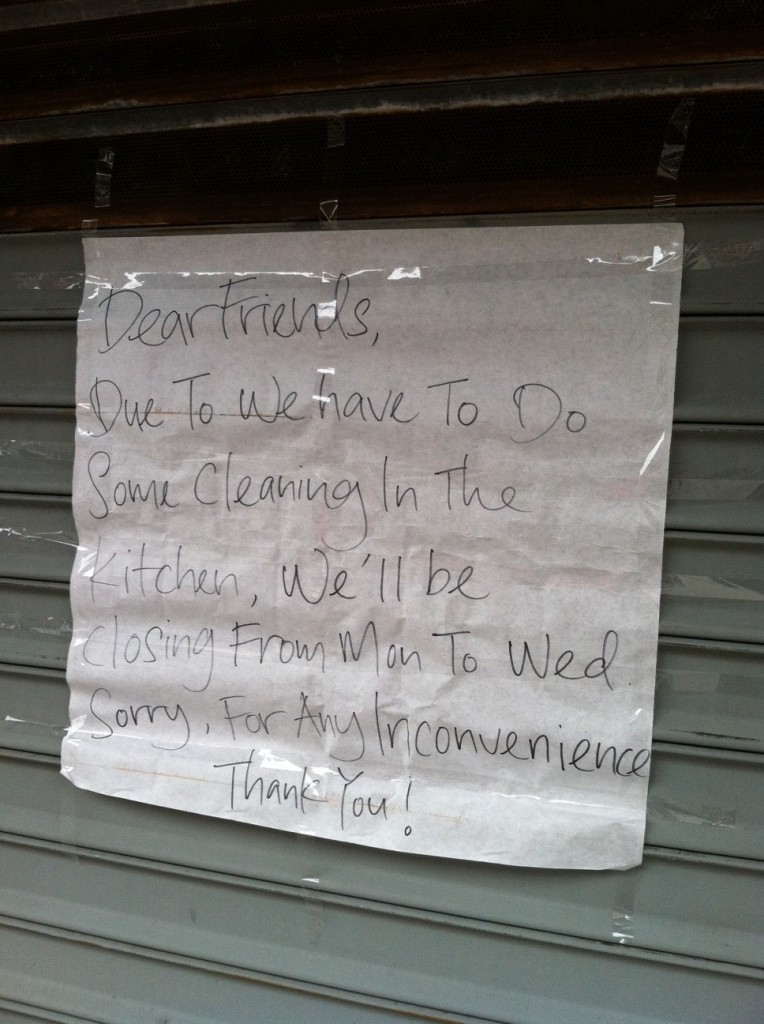 Dear Friends,
Due To We have To Do
Some Cleaning In The
Kitchen, We'll be
Closing From Mon To Wed.
Sorry, For Any Inconvenience
Thank You!